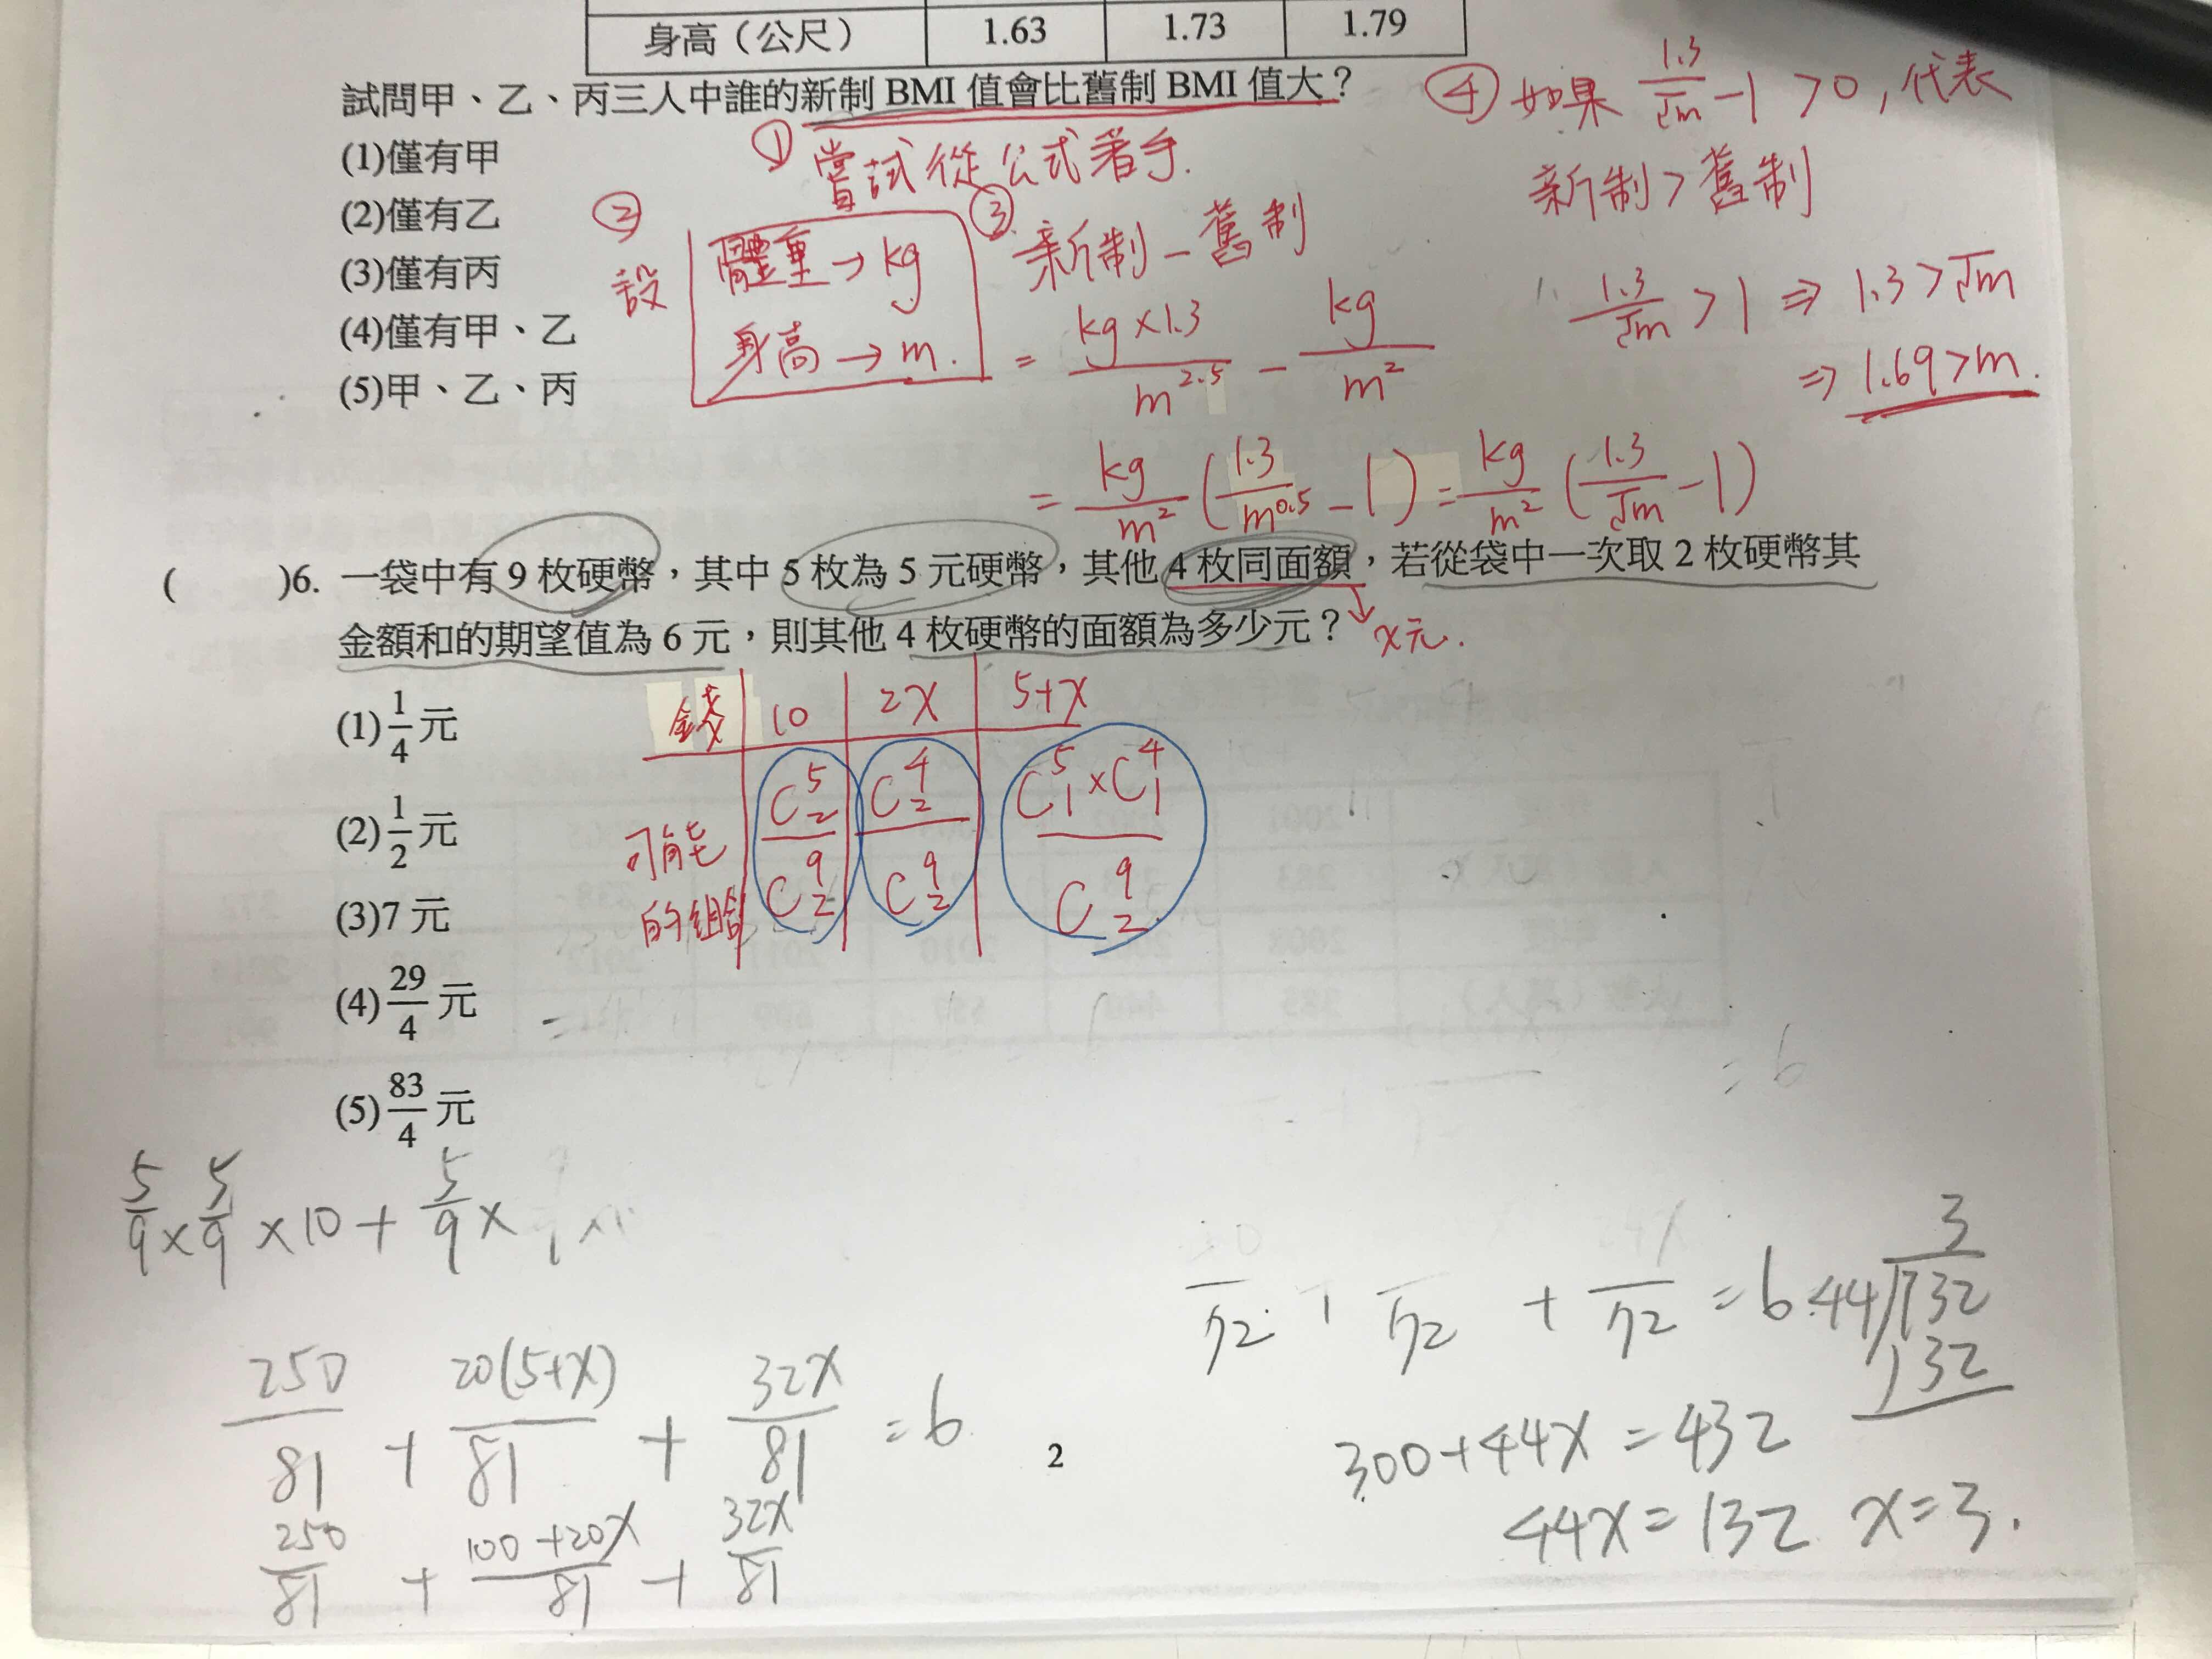 身高（公尺） 1.63 1.73 1.79
試問甲、乙、丙三人中誰的新制 BMI 值會比舊制 BMI 值大？
(1)僅有甲
(2)僅有乙
(3)僅有丙
(4)僅有甲、乙
(5)甲、乙、丙
① 嘗試從公式着手.
② 設
體重→kg
身高→m.
③ 新制-舊制
= kg×1.3/m^2.5 - kg/m^2
= kg/m^2 (1.3/m^0.5 - 1) = kg/m^2 (1.3/√m - 1)
④ 如果 1.3/√m - 1 >0, 代表
新制>舊制
1.3/√m > 1 ⇒ 1.3>√m
⇒ 1.69>m.
( )6. 一袋中有 9 枚硬幣，其中 5 枚為 5 元硬幣，其他 4 枚同面額，若從袋中一次取 2 枚硬幣其
金額和的期望值為 6 元，則其他 4 枚硬幣的面額為多少元？
x元.
(1) 1/4 元
(2) 1/2 元
(3)7 元
(4) 29/4 元
(5) 83/4 元
錢 10 2x 5+x
可能
的組合
C^5_2/C^9_2 C^4_2/C^9_2 C^5_1×C^4_1/C^9_2
5/9×5/9×10+5/9×
250/81 + 20(5+x)/81 + 32x/81 =6
250/81 + 100+20x/81 + 32x/81
/72 + /72 + /72 =6
3
44)132
132
300+44x=432
44x=132 x=3.
2